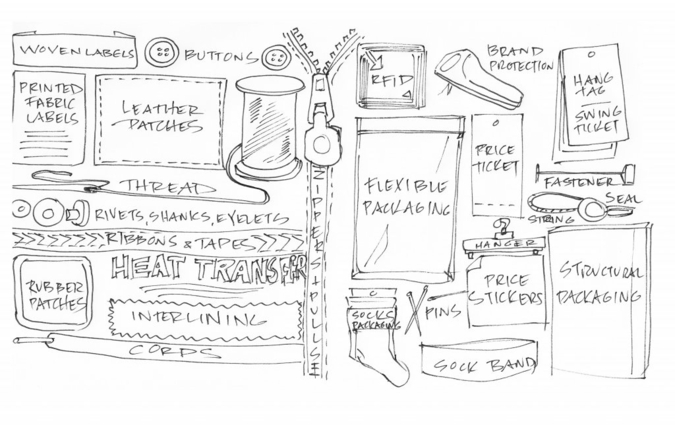 WOVEN LABELS
BUTTONS
PRINTED
FABRIC
LABELS
LEATHER
PATCHES
THREAD
RIVETS, SHANKS, EYELETS
RIBBONS & TAPES
RUBBER
PATCHES
HEAT TRANSFER
INTERLINING
CORDS
ZIPPERS & PULLS
RFID
BRAND
PROTECTION
HANG
TAG
SWING
TICKET
FLEXIBLE
PACKAGING
PRICE
TICKET
FASTENER
SEAL
STRING
HANGER
SOCKS
PACKAGING
PINS
PRICE
STICKERS
STRUCTURAL
PACKAGING
SOCK BAND